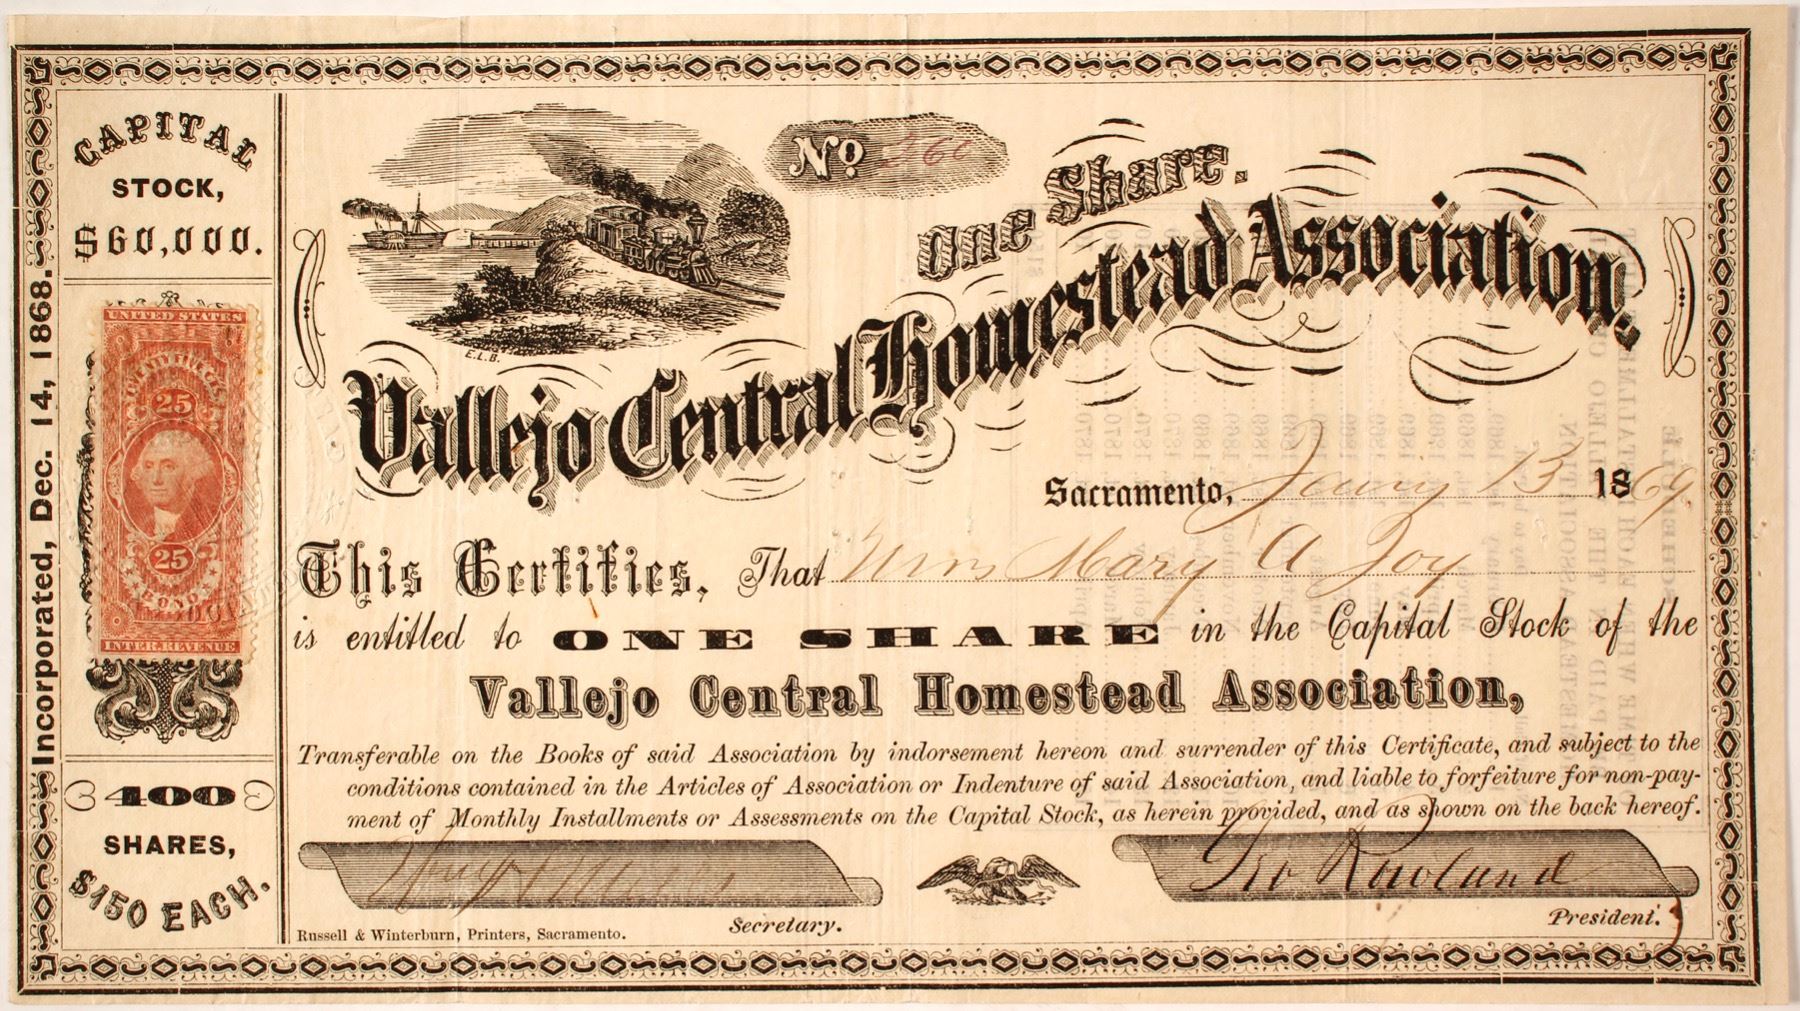 CAPITAL
STOCK,
$60,000.
Incorporated, Dec. 14, 1868.
UNITED STATES
TWENTY FIVE CENTS
25
25
BOND
INTER. REVENUE
400
SHARES,
$150 EACH.
E.L.B.
No. 360
One Share.
Vallejo Central Homestead Association.
Sacramento, 13 1869
This Certifies, That Mrs Mary A Joy
is entitled to ONE SHARE in the Capital Stock of the
Vallejo Central Homestead Association,
Transferable on the Books of said Association by indorsement hereon and surrender of this Certificate, and subject to the
conditions contained in the Articles of Association or Indenture of said Association, and liable to forfeiture for non-pay-
ment of Monthly Installments or Assessments on the Capital Stock, as herein provided, and as shown on the back hereof.
Geo Rowland
Secretary.
President.
Russell & Winterburn, Printers, Sacramento.